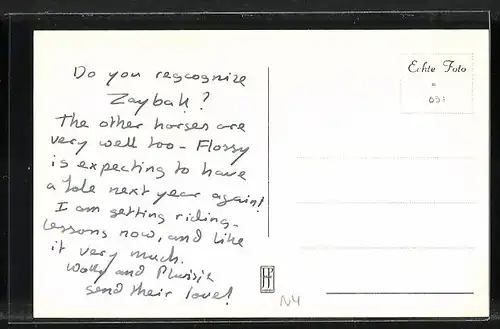 Do you regcognize
Zaybah?
The other horses are
very well too - Flossy
is expecting to have
a fole next year again!
I am getting riding-
lessons now, and like
it very much.
Wolly and
send their love!
Echte Foto
N4